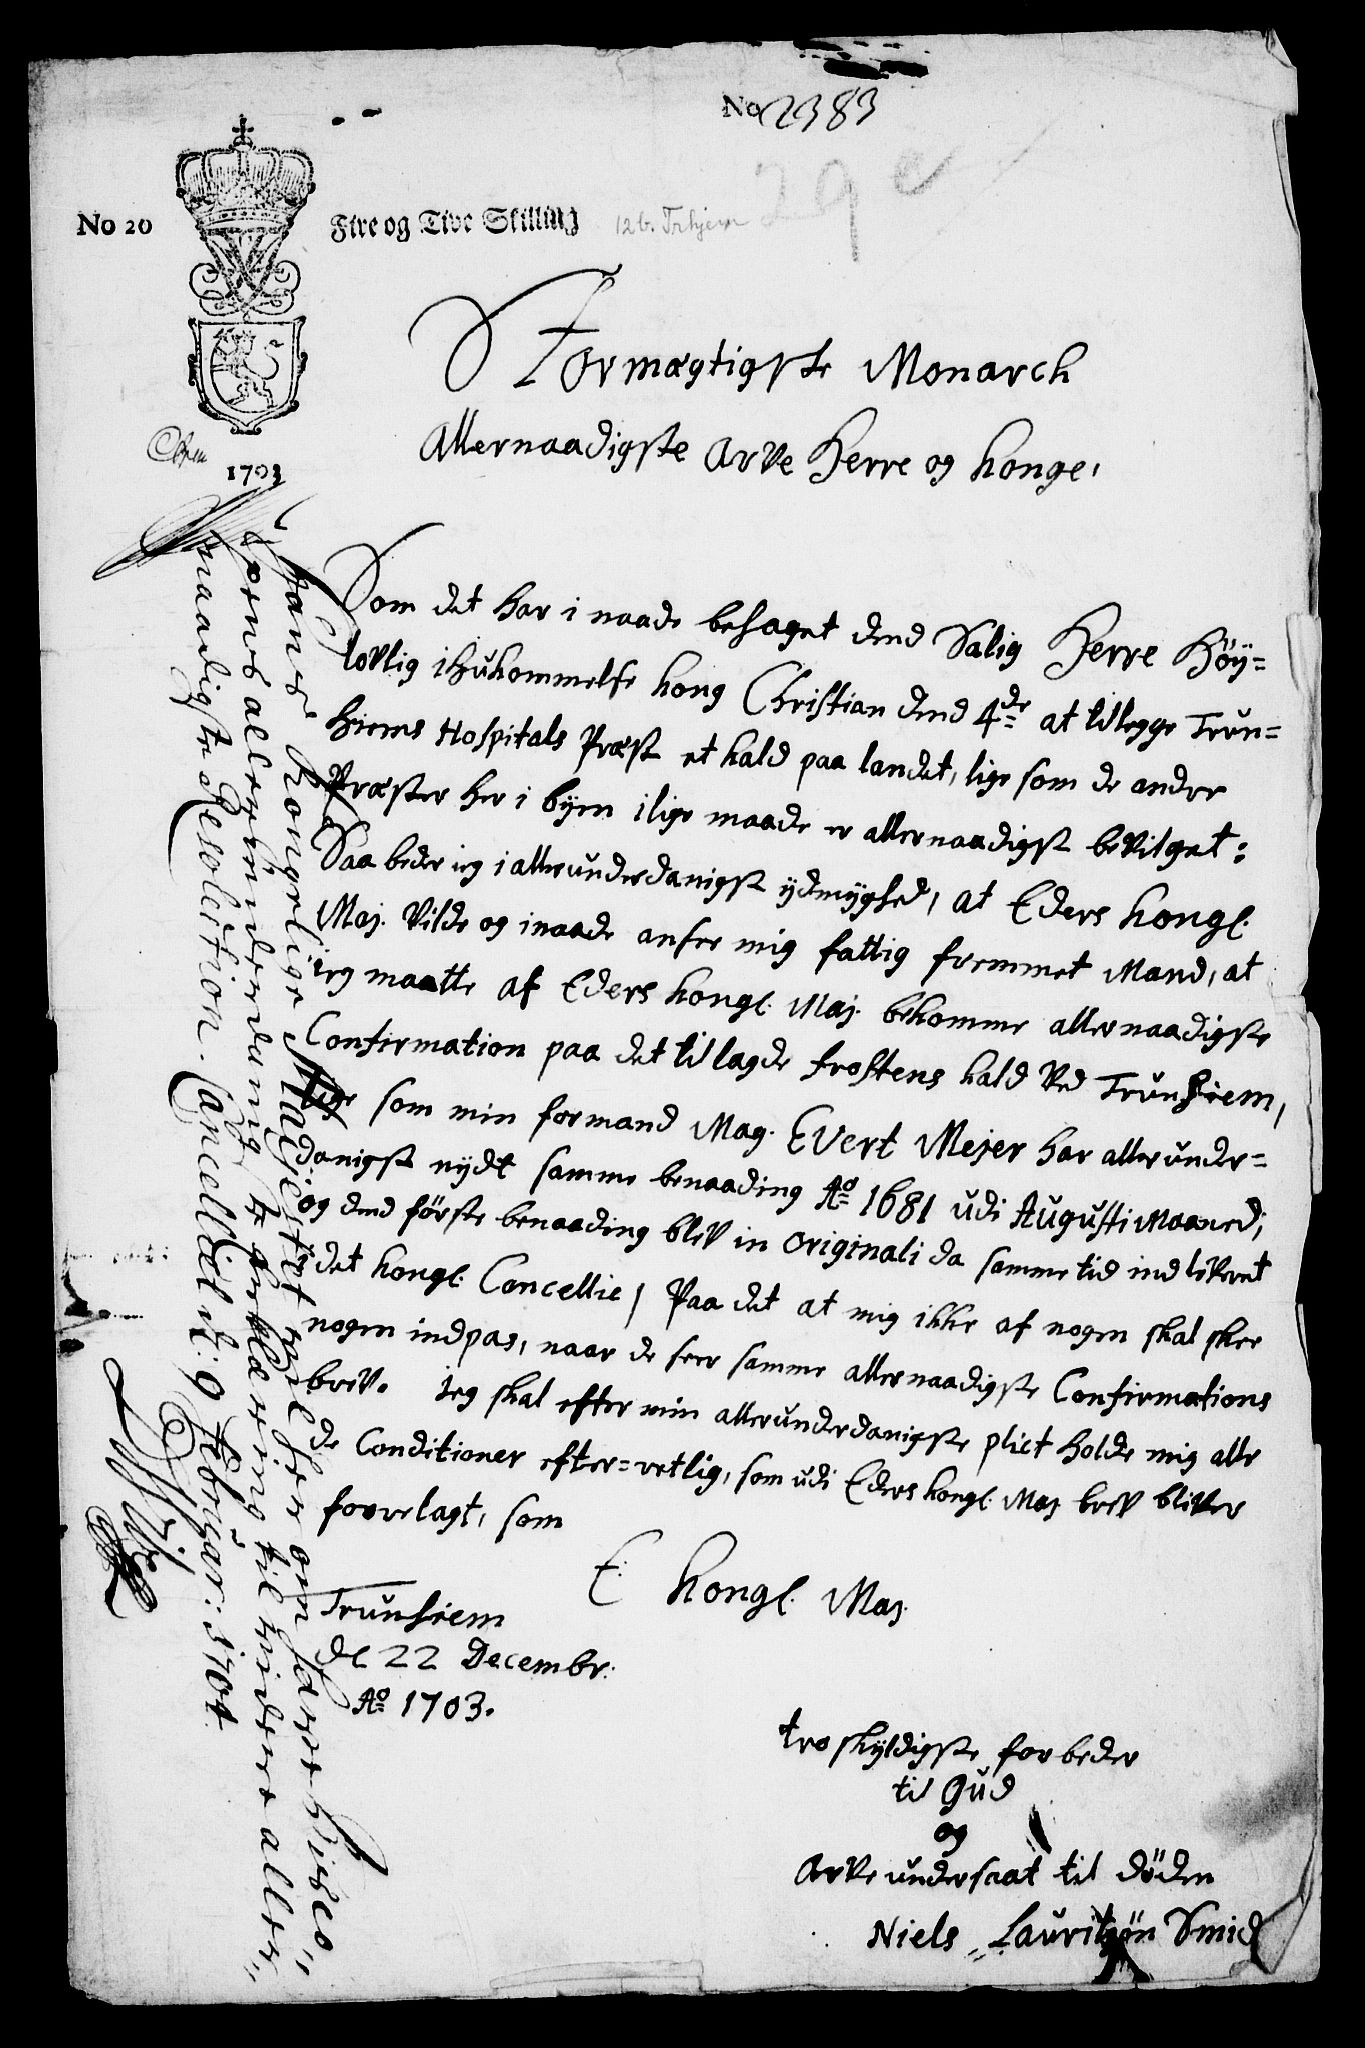 No 2383
29 e
No 20
Fire og Tive Skilling
12 b. Trhjem
1703
Stormægtigste Monarch
Allernaadigste Arve Herre og Konge,
Som det har i naade behaget dend Salig Herre Höy=
lovlig ihukommelse kong Christian dend 4de at tillegge Trun=
hiems Hospitals Præst et kald paa landet, lige som de andre
Præster her i byen i lige maade er allernaadigst bevilget:
Saa beder ieg i allerunderdanigst ydmyghed, at Eders kongl.
Maj. vilde og i naade ansee mig fattig fremmet Mand, at
ieg maatte af Eders kongl. Maj. bekomme allernaadigste
Confirmation paa det tillagde frostens kald ved Trunhiem,
lige som min formand Mag. Evert Mejer har allerunder=
danigst nydt samme benaading Ao 1681 udi Augusti Maaned;
og dend förste benaading blev in originali da samme tid indlevert
i det kongl. Cancellie / Paa det at mig ikke af nogen skal skee
nogen indpas, naar de seer samme allernaadigste Confirmations
brev. Jeg skal efter min allerunderdanigste plict holde mig alle
de Conditioner efter=retlig, som udi Eders kongl. Maj brev bliver
forelagt, som
E. kongl. Maj.
Trunhiem
de 22 Decembr:
Ao 1703.
troskyldigste forbeder
til Gud
og
Arve undersaat til döden
Niels Lauritzön Smid
Hans Kongelige Mayestet vil her om fordre Bisco„
pens allerunderdanigste erklæring til videre aller„
naadigste Resolution. Cancelliet d: 9 Februar: 1704.